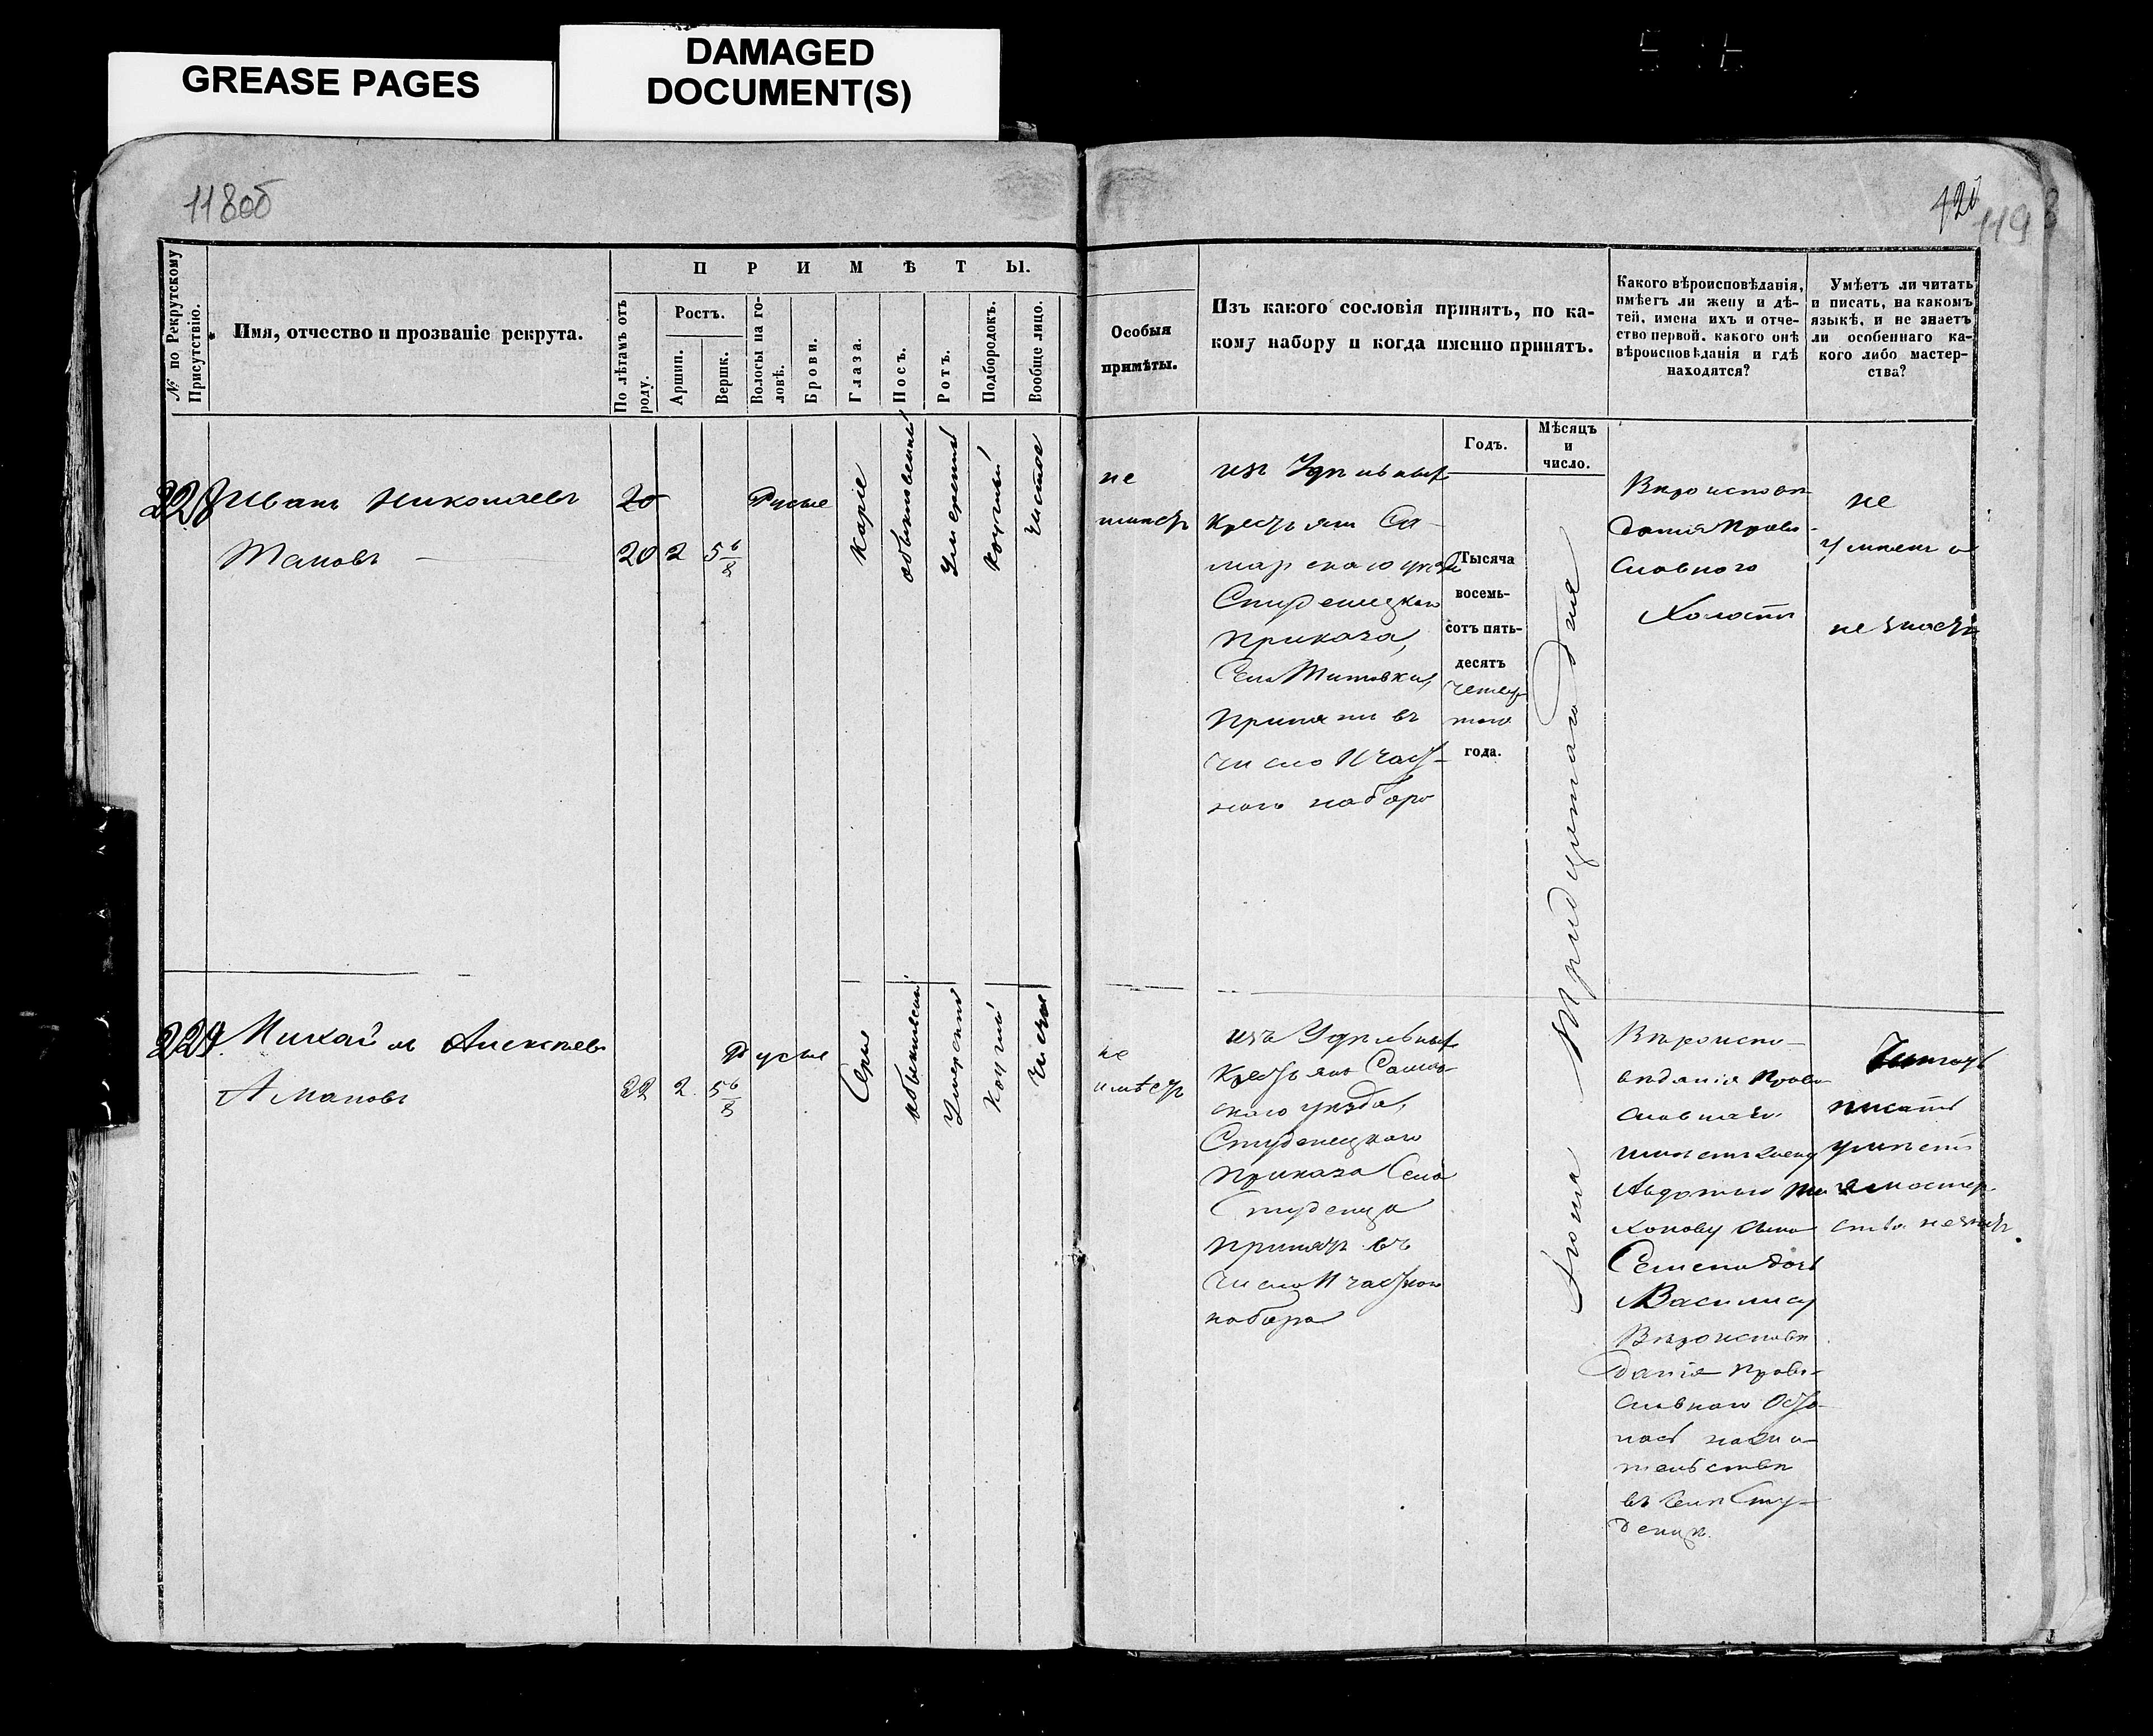 GREASE PAGES
DAMAGED
DOCUMENT(S)
118об
120
119
№ по Рекрутскому
Присутствію.
Имя, отчество и прозваніе рекрута.
ПРИМѢТЫ.
По лѣтамъ отъ
роду.
Ростъ.
Аршин.
Вершк.
Волосы на го-
ловѣ.
Брови.
Глаза.
Носъ.
Ротъ.
Подбородокъ.
Вообще лицо.
Особыя
примѣты.
Изъ какого сословія принятъ, по ка-
кому набору и когда именно принятъ.
Годъ.
Мѣсяцъ
и
число.
Какого вѣроисповѣданія,
имѣетъ ли жену и дѣ-
тей, имена ихъ и отче-
ство первой, какого онѣ
вѣроисповѣданія и гдѣ
находятся?
Умѣетъ ли читать
и писать, на какомъ
языкѣ, и не знаетъ
ли особеннаго ка-
кого либо мастер-
ства?
228
Иванъ Николаевъ
20
20 2 5 6/8
Русые
Каріе
обыкновенный
Умеренный
Круглый
Чистое
не
имеетъ
изъ Удѣльныхъ
Крестьянъ Са-
марскаго уезда
Студенецкаго
Приказа,
Села Титовки,
Принятъ въ
число II част-
наго набора
Тысяча
восемь-
сотъ пять-
десятъ
четвер-
таго
года.
Іюня Тридцатаго дня
Вѣроисповѣ-
данія Право-
славного
Холостъ
не
умѣетъ и
не знаетъ
229
Михайла Алексѣевъ
Амановъ
22 2 5 6/8
Русые
Серые
обыкновенный
Умеренный
Круглый
Чистое
не
имѣетъ
изъ Удѣльныхъ
Крестьянъ Самар-
скаго уѣзда,
Студенецкаго
Приказа Села
Студенца
принятъ въ
число II частнаго
набора
Вѣроиспо-
вѣданія Право-
славнаго
имѣетъ жену
Авдотью Ти-
хонову сына
Семена дочь
Василису
Вѣроисповѣ-
данія Право-
славнаго Оста-
лась на жи-
тельствѣ
въ Селѣ Сту-
денцѣ.
Читать
писать
умѣетъ
а мастер-
ства не знаетъ.